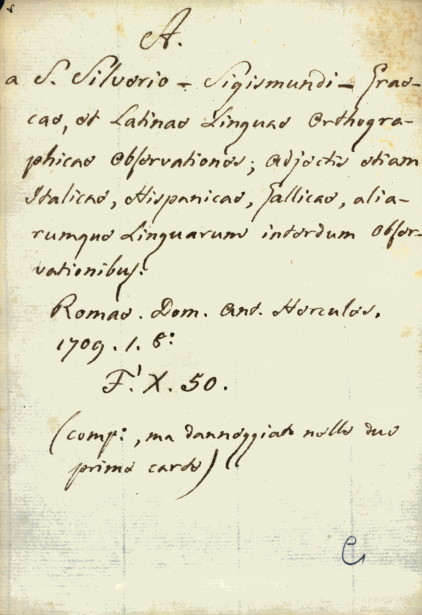 A.
a S. Silverio - Sigismundi - Grae-
cae, et Latinae Linguae Orthogra-
phicae Observationes; Adjectis etiam
Italicae, Hispanicae, Gallicae, alia-
rumque Linguarum interdum Obser-
vationibus.
Romae. Dom. Ant. Hercules.
1709. 1. 8:
F. X. 50.
(comp:, ma danneggiato nelle due
prime carte)
C